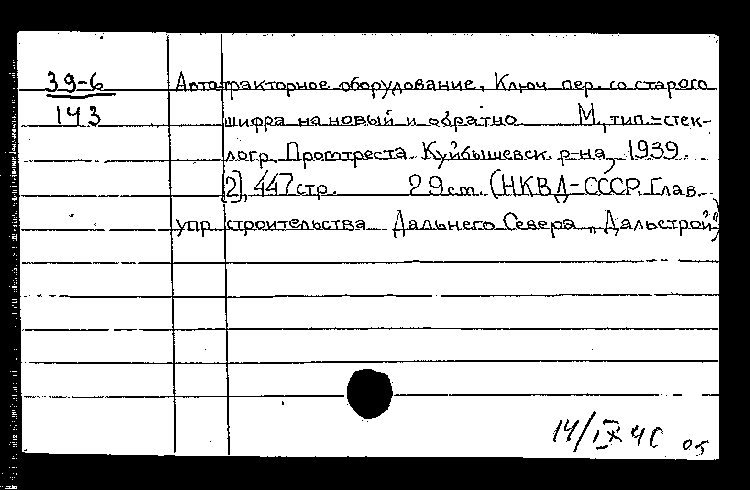 39-6
143
Автотракторное оборудование. Ключ пер. со старого
шифра на новый и обратно М., тип.=стек-
логр. Промтреста Куйбышевск. р-на, 1939.
[2], 447 стр. 29 см. (НКВД-СССР. Глав.
упр. строительства Дальнего Севера „Дальстрой")
14/IX 40 05